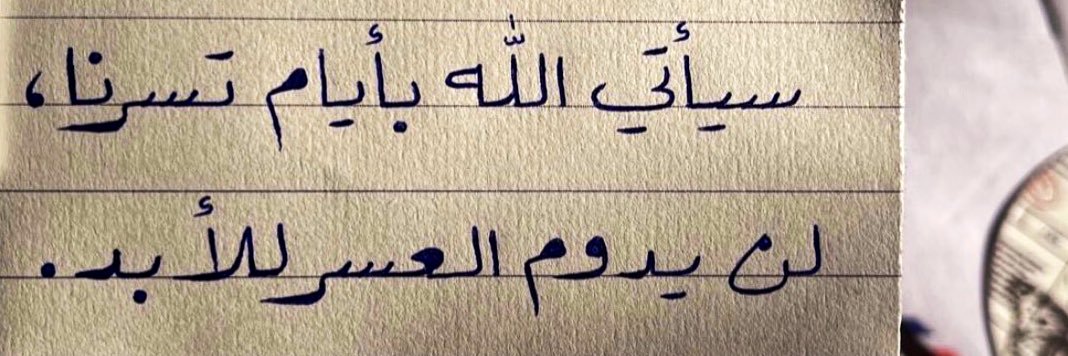 سيأتي الله بأيام تسرنا،
لن يدوم العسر للأبد.